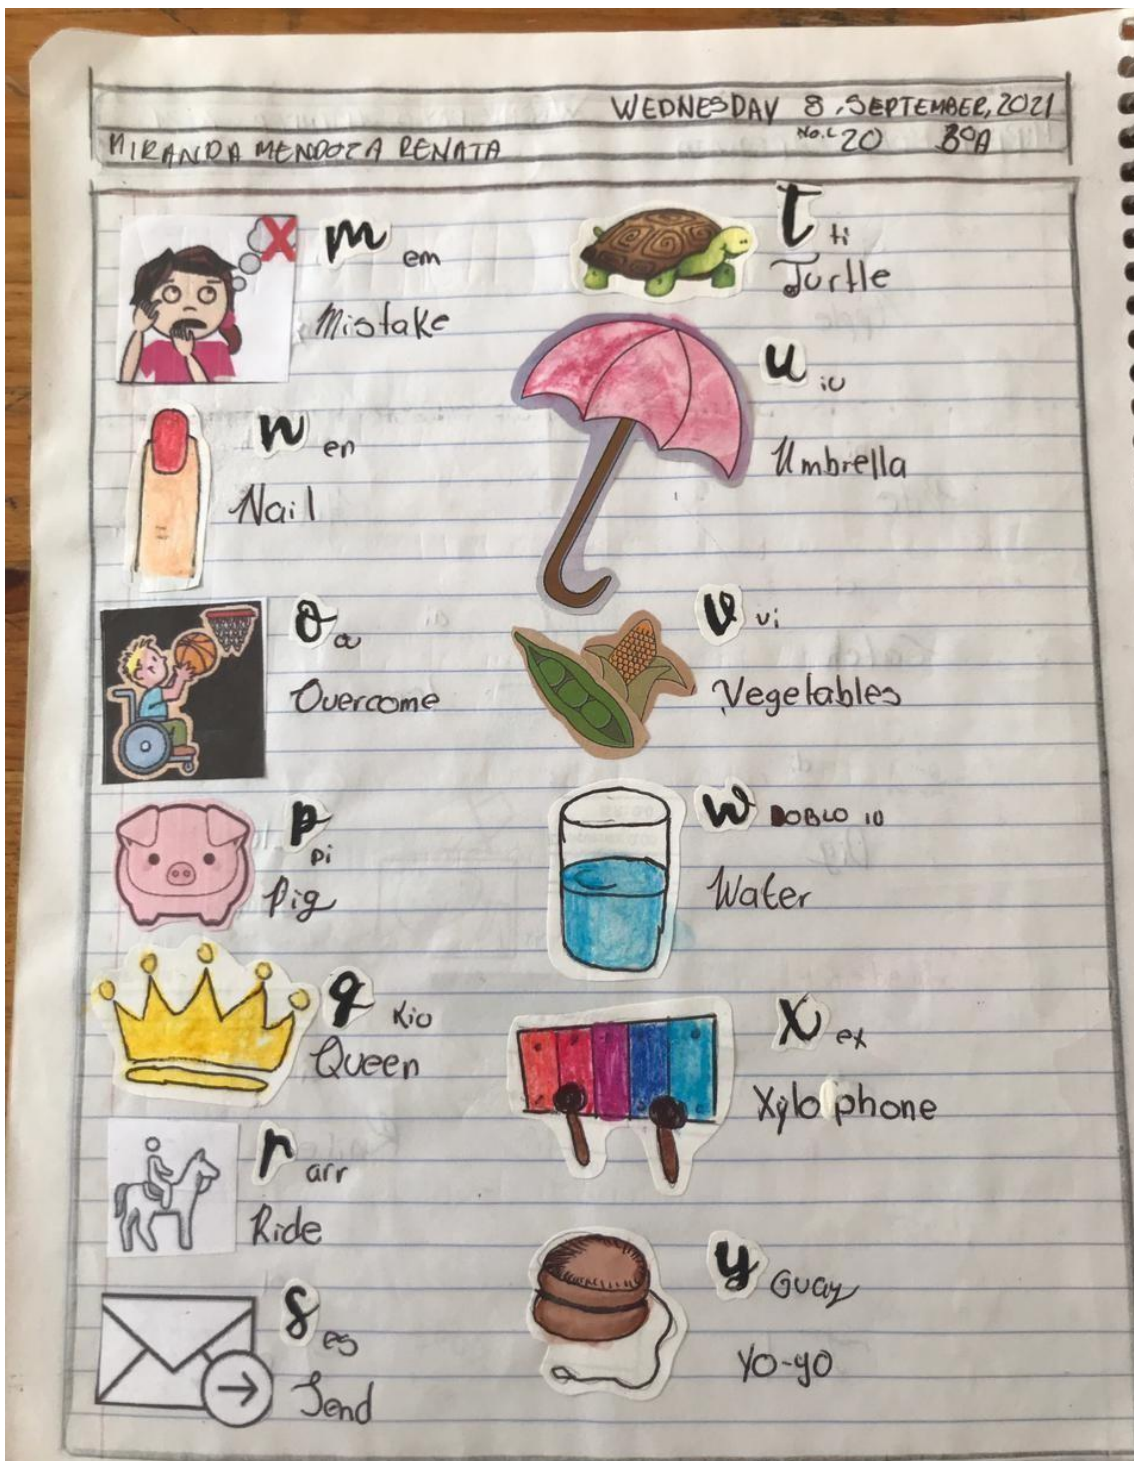 WEDNESDAY 8, SEPTEMBER, 2021
MIRANDA MENDOZA RENATA No.L 20 3ºA
m em
Mistake
n en
Nail
o ou
Overcome
p pi
Pig
q Kiu
Queen
r arr
Ride
s es
Send
t ti
Turtle
u iu
Umbrella
v vi
Vegetables
w DOBLO IU
Water
X ex
Xylophone
y Guay
Yo-yo